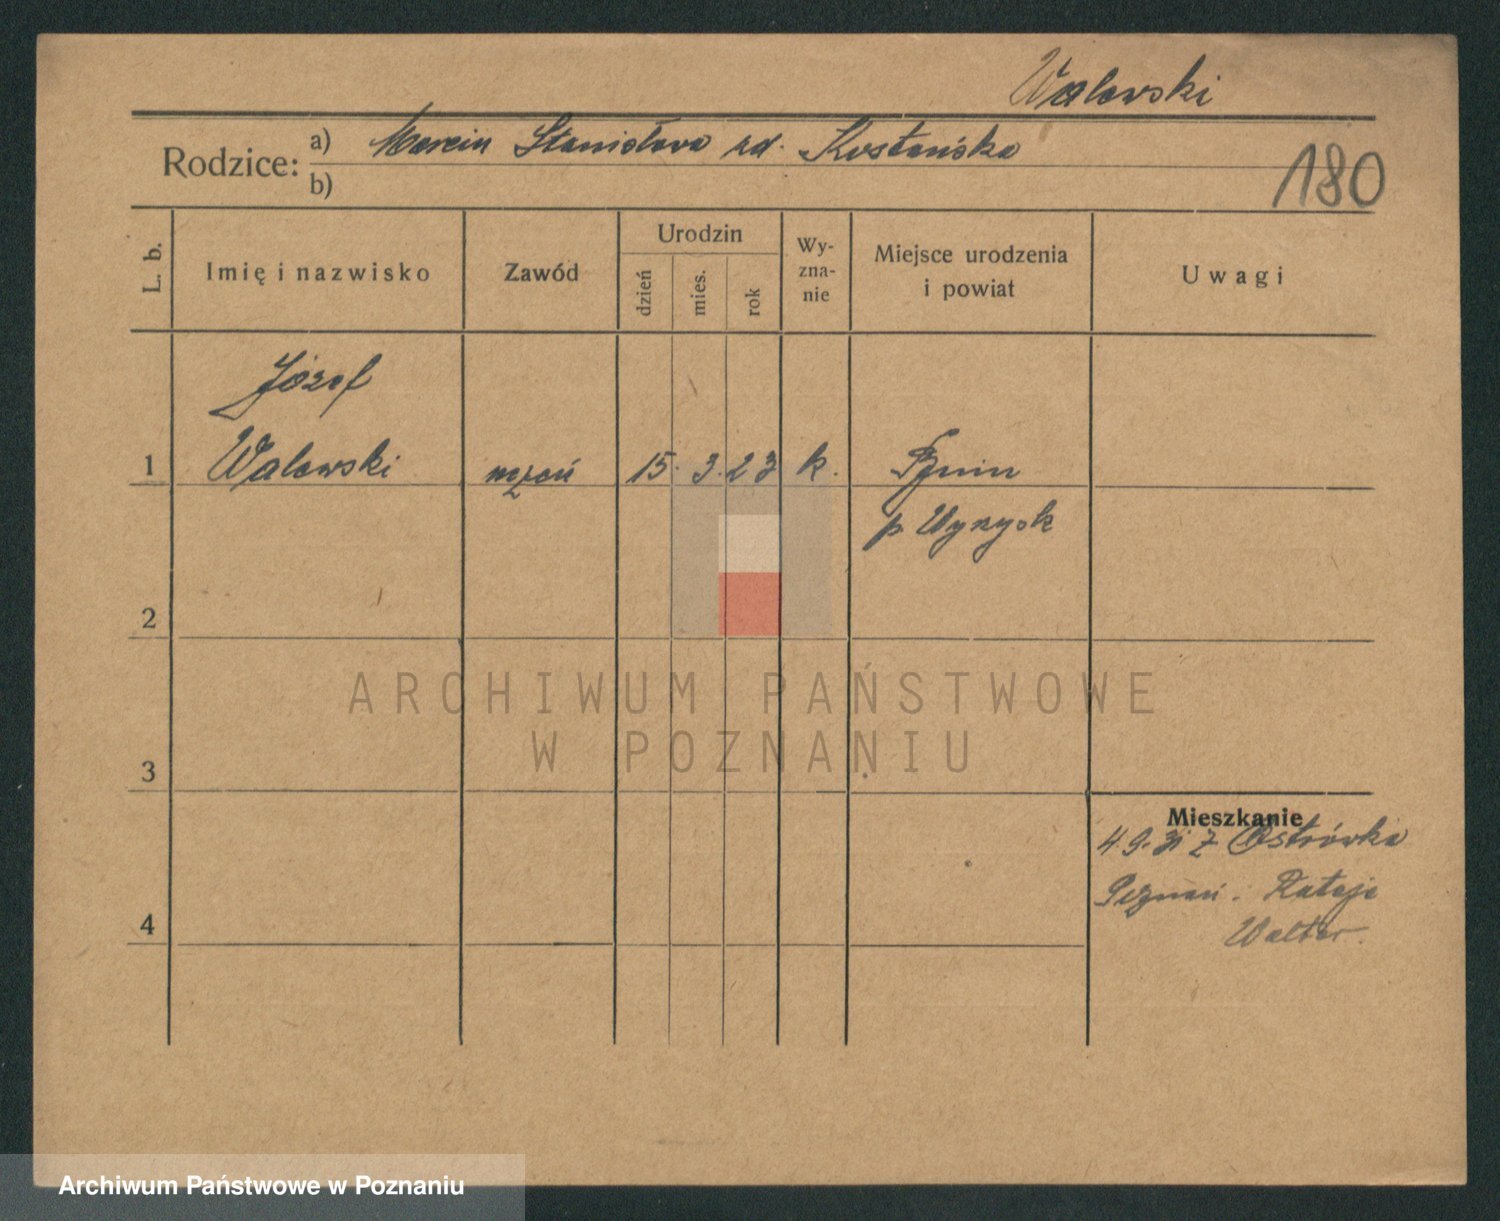 Walewski
Rodzice: a) Marcin Stanisława zd. Kostańska
b)
180
L. b. Imię i nazwisko Zawód Urodzin dzień mies. rok Wy-zna-nie Miejsce urodzenia i powiat Uwagi
Józef
1 Walewski uczeń 15. 3. 23 k.
p. Wyrzysk
2
ARCHIWUM PAŃSTWOWE
W POZNANIU
3
Mieszkanie
4.9. z Ostrówka
Poznań. Rataje
4 Walter
Archiwum Państwowe w Poznaniu